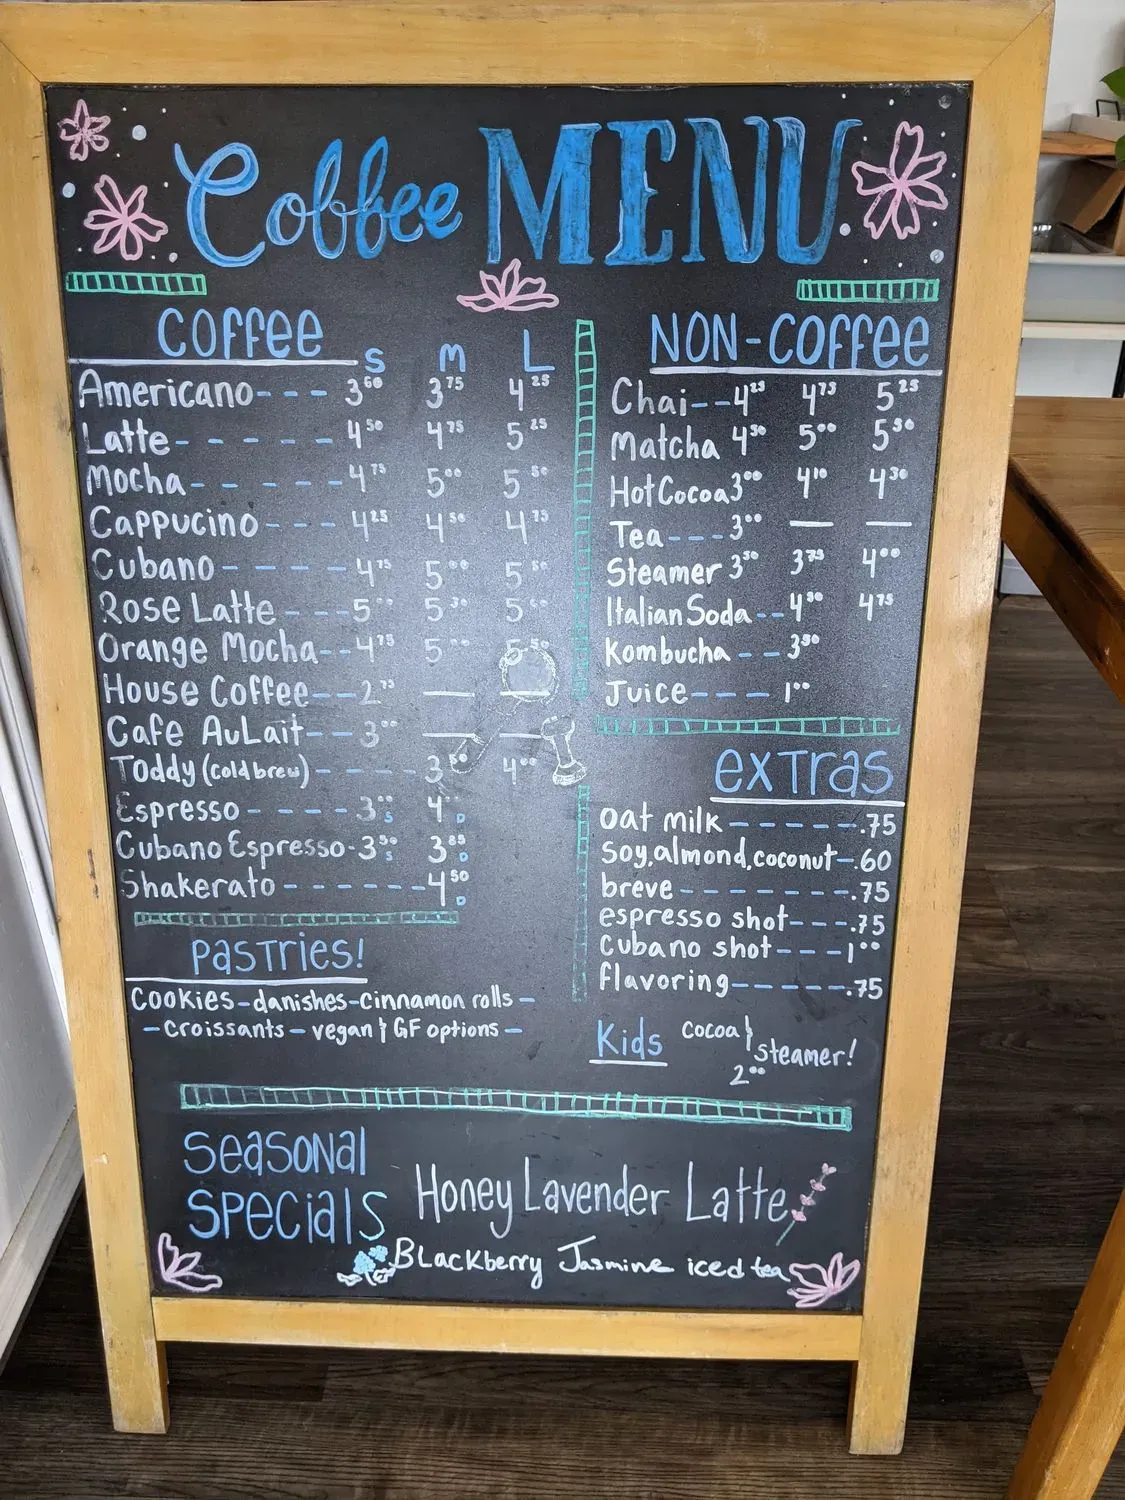 Coffee MENU
COFFEE S M L
Americano --- 3⁶⁰ 3⁷⁵ 4²⁵
Latte ------ 4⁵⁰ 4⁷⁵ 5²⁵
Mocha ----- 4⁷⁵ 5⁰⁰ 5⁵⁰
Cappucino --- 4²⁵ 4⁵⁰ 4⁷⁵
Cubano ----- 4⁷⁵ 5⁰⁰ 5⁵⁰
Rose Latte --- 5⁰⁰ 5³⁰ 5
Orange Mocha -- 4⁷⁵ 5⁰⁰ 5⁵⁰
House Coffee -- 2⁷⁵ — —
Cafe AuLait -- 3⁰⁰ — —
Toddy (cold brew) ----- 3⁵⁰ 4⁰⁰
Espresso ---- 3⁰⁰ S 4⁰⁰ D
Cubano Espresso - 3⁵⁰ S 3⁸⁵ D
Shakerato ------- 4⁵⁰ D
PASTRIES!
Cookies - danishes - cinnamon rolls -
- croissants - vegan & GF options -
NON-COFFEE
Chai -- 4²⁵ 4⁷⁵ 5²⁵
Matcha 4⁵⁰ 5⁰⁰ 5⁵⁰
Hot Cocoa 3⁰⁰ 4¹⁰ 4³⁰
Tea --- 3⁰⁰ — —
Steamer 3⁵⁰ 3⁷⁵ 4⁰⁰
Italian Soda -- 4³⁰ 4⁷⁵
Kombucha -- 3⁵⁰
Juice ---- 1⁰⁰
EXTRAS
oat milk ------ .75
soy, almond, coconut - .60
breve -------- .75
espresso shot --- .75
cubano shot --- 1⁰⁰
flavoring ------ .75
Kids cocoa &
steamer!
2⁰⁰
SEASONAL
SPECIALS
Honey Lavender Latte
Blackberry Jasmine iced tea